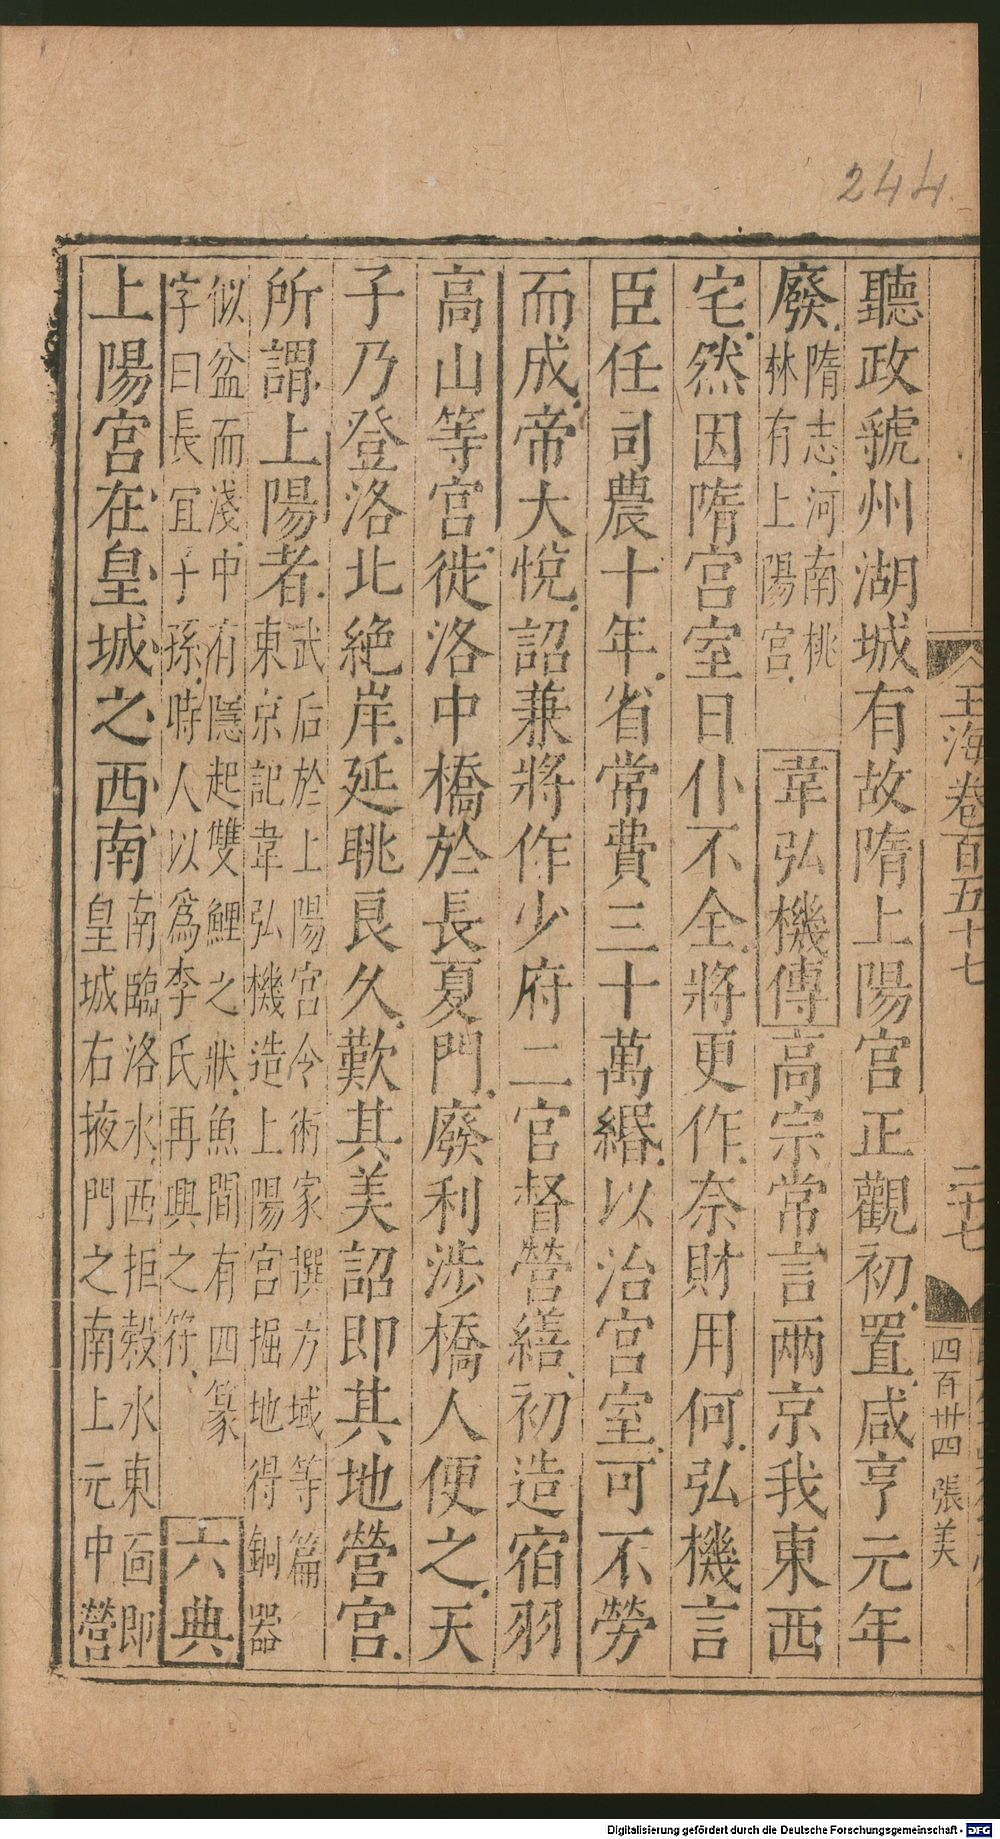 244
聽政虢州湖城有故隋上陽宮正觀初置咸亨元年
廢隋志河南桃
林有上陽宮韋弘機傳高宗常言兩京我東西
宅然因隋宮室日仆不全將更作奈財用何弘機言
臣任司農十年省常費三十萬緡以治宮室可不勞
而成帝大悅詔兼將作少府二官督營繕初造宿羽
高山等宮徙洛中橋於長夏門廢利涉橋人便之天
子乃登洛北絶岸延眺良久歎其美詔即其地營宮
所謂上陽者武后於上陽宮令術家撰方域等篇
東京記韋弘機造上陽宮掘地得銅器
似盆而淺中有隱起雙鯉之狀魚間有四篆
字曰長宜子孫時人以爲李氏再興之符六典
上陽宮在皇城之西南南臨洛水西拒穀水東面即
皇城右掖門之南上元中營
玉海卷百五十七
二十七
四百卅四 張美
Digitalisierung gefördert durch die Deutsche Forschungsgemeinschaft - DFG